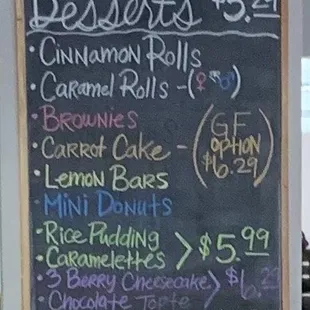 Desserts $5.29
• Cinnamon Rolls
• Caramel Rolls - (♀♂)
• Brownies
• Carrot Cake - (GF OPTION $6.29)
• Lemon Bars
• Mini Donuts
• Rice Pudding
• Caramelettes > $5.99
• 3 Berry Cheesecake > $6.29
• Chocolate Torte